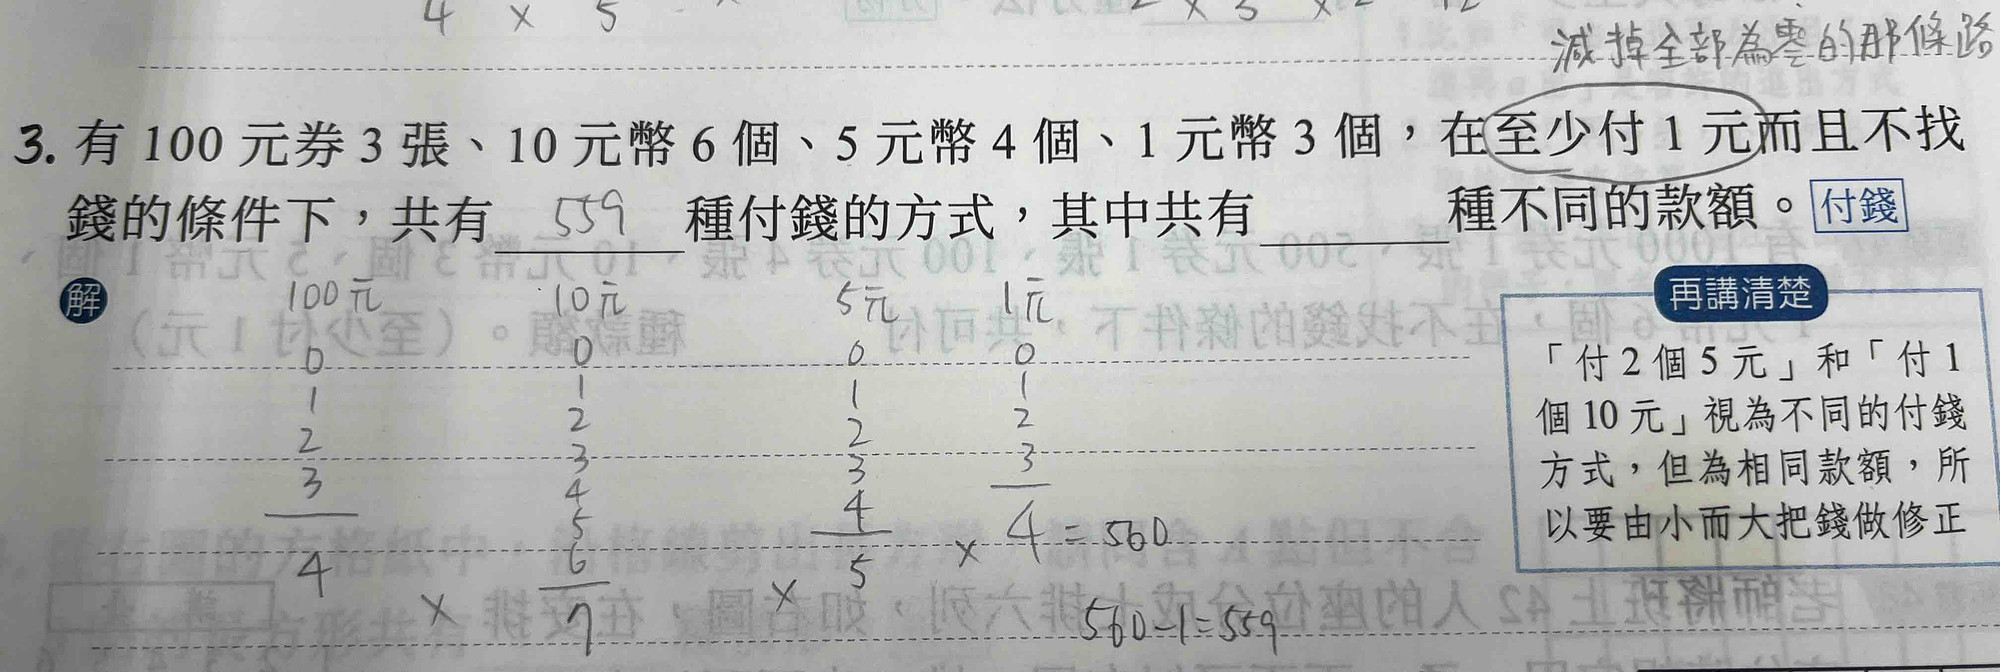 4 × 5
減掉全部為零的那條路
3. 有 100 元券 3 張、10 元幣 6 個、5 元幣 4 個、1 元幣 3 個，在至少付 1 元而且不找
錢的條件下，共有 559 種付錢的方式，其中共有______種不同的款額。付錢
解
100元 10元 5元 1元
0 0 0 0
1 1 1 1
2 2 2 2
3 3 3 3
4 4
5
6
4 × 7 × 5 × 4 = 560
560-1=559
再講清楚
「付 2 個 5 元」和「付 1
個 10 元」視為不同的付錢
方式，但為相同款額，所
以要由小而大把錢做修正